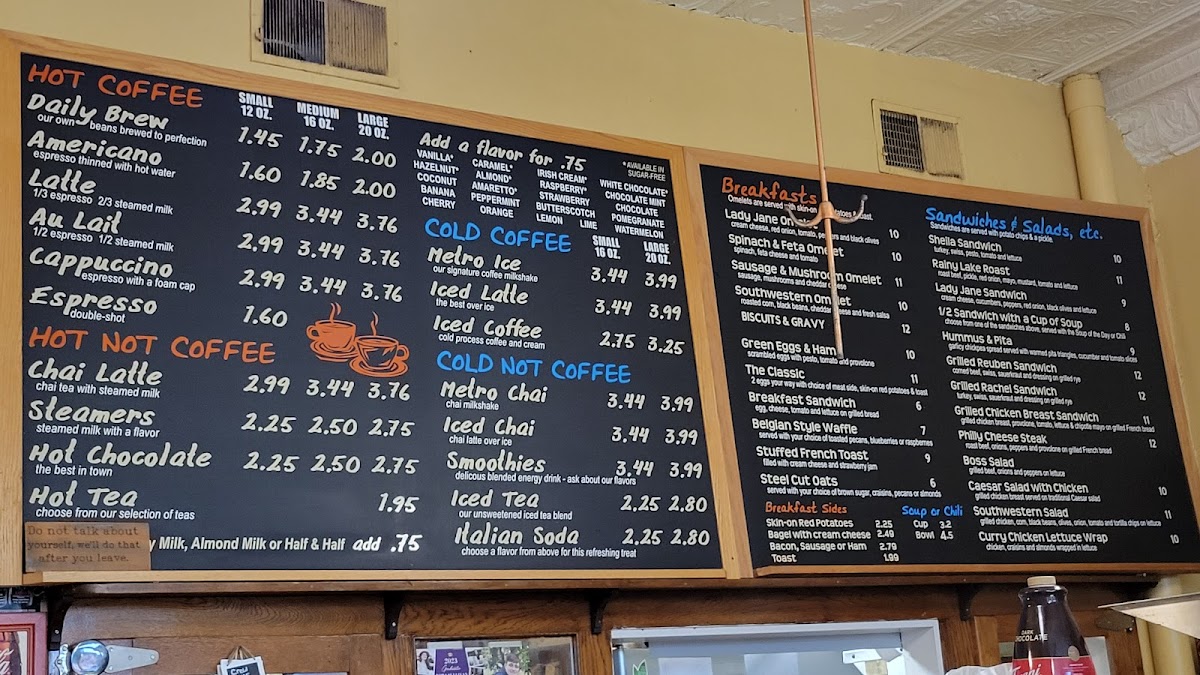 HOT COFFEE
SMALL 12 OZ. MEDIUM 16 OZ. LARGE 20 OZ.
Daily Brew 1.45 1.75 2.00
our own beans brewed to perfection
Americano 1.60 1.85 2.00
espresso thinned with hot water
Latte 2.99 3.44 3.76
1/3 espresso 2/3 steamed milk
Au Lait 2.99 3.44 3.76
1/2 espresso 1/2 steamed milk
Cappuccino 2.99 3.44 3.76
espresso with a foam cap
Espresso 1.60
double-shot
HOT NOT COFFEE
Chai Latte 2.99 3.44 3.76
chai tea with steamed milk
Steamers 2.25 2.50 2.75
steamed milk with a flavor
Hot Chocolate 2.25 2.50 2.75
the best in town
Hot Tea 1.95
choose from our selection of teas
Do not talk about
yourself, we'll do that
after you leave.
Milk, Almond Milk or Half & Half add .75
Add a flavor for .75
*AVAILABLE IN
SUGAR-FREE
VANILLA* CARAMEL* IRISH CREAM* WHITE CHOCOLATE*
HAZELNUT* ALMOND* RASPBERRY* CHOCOLATE MINT
COCONUT AMARETTO* STRAWBERRY CHOCOLATE
BANANA PEPPERMINT BUTTERSCOTCH POMEGRANATE
CHERRY ORANGE LEMON LIME WATERMELON
COLD COFFEE
SMALL 16 OZ. LARGE 20 OZ.
Metro Ice 3.44 3.99
our signature coffee milkshake
Iced Latte 3.44 3.99
the best over ice
Iced Coffee 2.75 3.25
cold process coffee and cream
COLD NOT COFFEE
Metro Chai 3.44 3.99
chai milkshake
Iced Chai 3.44 3.99
chai latte over ice
Smoothies 3.44 3.99
delicious blended energy drink - ask about our flavors
Iced Tea 2.25 2.80
our unsweetened iced tea blend
Italian Soda 2.25 2.80
choose a flavor from above for this refreshing treat
Breakfasts
Omelets are served with skin-on potatoes & toast.
Lady Jane Omelet 10
cream cheese, red onion, tomato, peppers and black olives
Spinach & Feta Omelet 10
spinach, feta cheese and tomato
Sausage & Mushroom Omelet 11
sausage, mushrooms and cheddar cheese
Southwestern Omelet 10
roasted corn, black beans, cheddar cheese and fresh salsa
BISCUITS & GRAVY 12
Green Eggs & Ham 10
scrambled eggs with pesto, tomato and provolone
The Classic 11
2 eggs your way with choice of meat side, skin-on red potatoes & toast
Breakfast Sandwich 6
egg, cheese, tomato and lettuce on grilled bread
Belgian Style Waffle 7
served with your choice of toasted pecans, blueberries or raspberries
Stuffed French Toast 9
filled with cream cheese and strawberry jam
Steel Cut Oats 6
served with your choice of brown sugar, craisins, pecans or almonds
Breakfast Sides
Skin-on Red Potatoes 2.25
Bagel with cream cheese 2.49
Bacon, Sausage or Ham 2.79
Toast 1.99
Soup or Chili
Cup 3.2
Bowl 4.5
Sandwiches & Salads, etc.
Sandwiches are served with potato chips & a pickle.
Shella Sandwich 10
turkey, swiss, pesto, tomato and lettuce
Rainy Lake Roast 11
roast beef, pickle, red onion, mayo, mustard, tomato and lettuce
Lady Jane Sandwich 9
cream cheese, cucumbers, peppers, red onion, black olives and lettuce
1/2 Sandwich with a Cup of Soup 8
choose from one of the sandwiches above, served with the Soup of the Day or Chili
Hummus & Pita 9
garlicy chickpea spread served with warmed pita triangles, cucumber and tomato slices
Grilled Reuben Sandwich 12
corned beef, swiss, sauerkraut and dressing on grilled rye
Grilled Rachel Sandwich 12
turkey, swiss, sauerkraut and dressing on grilled rye
Grilled Chicken Breast Sandwich 11
grilled chicken breast, provolone, tomato, lettuce & chipotle mayo on grilled French bread
Philly Cheese Steak 12
roast beef, onions, peppers and provolone on grilled French bread
Boss Salad
grilled beef, onions and peppers on lettuce
Caesar Salad with Chicken 10
grilled chicken breast served on traditional Caesar salad
Southwestern Salad 11
grilled chicken, corn, black beans, olives, onion, tomato and tortilla chips on lettuce
Curry Chicken Lettuce Wrap 10
chicken, craisins and almonds wrapped in lettuce
2023
DARK
CHOCOLATE